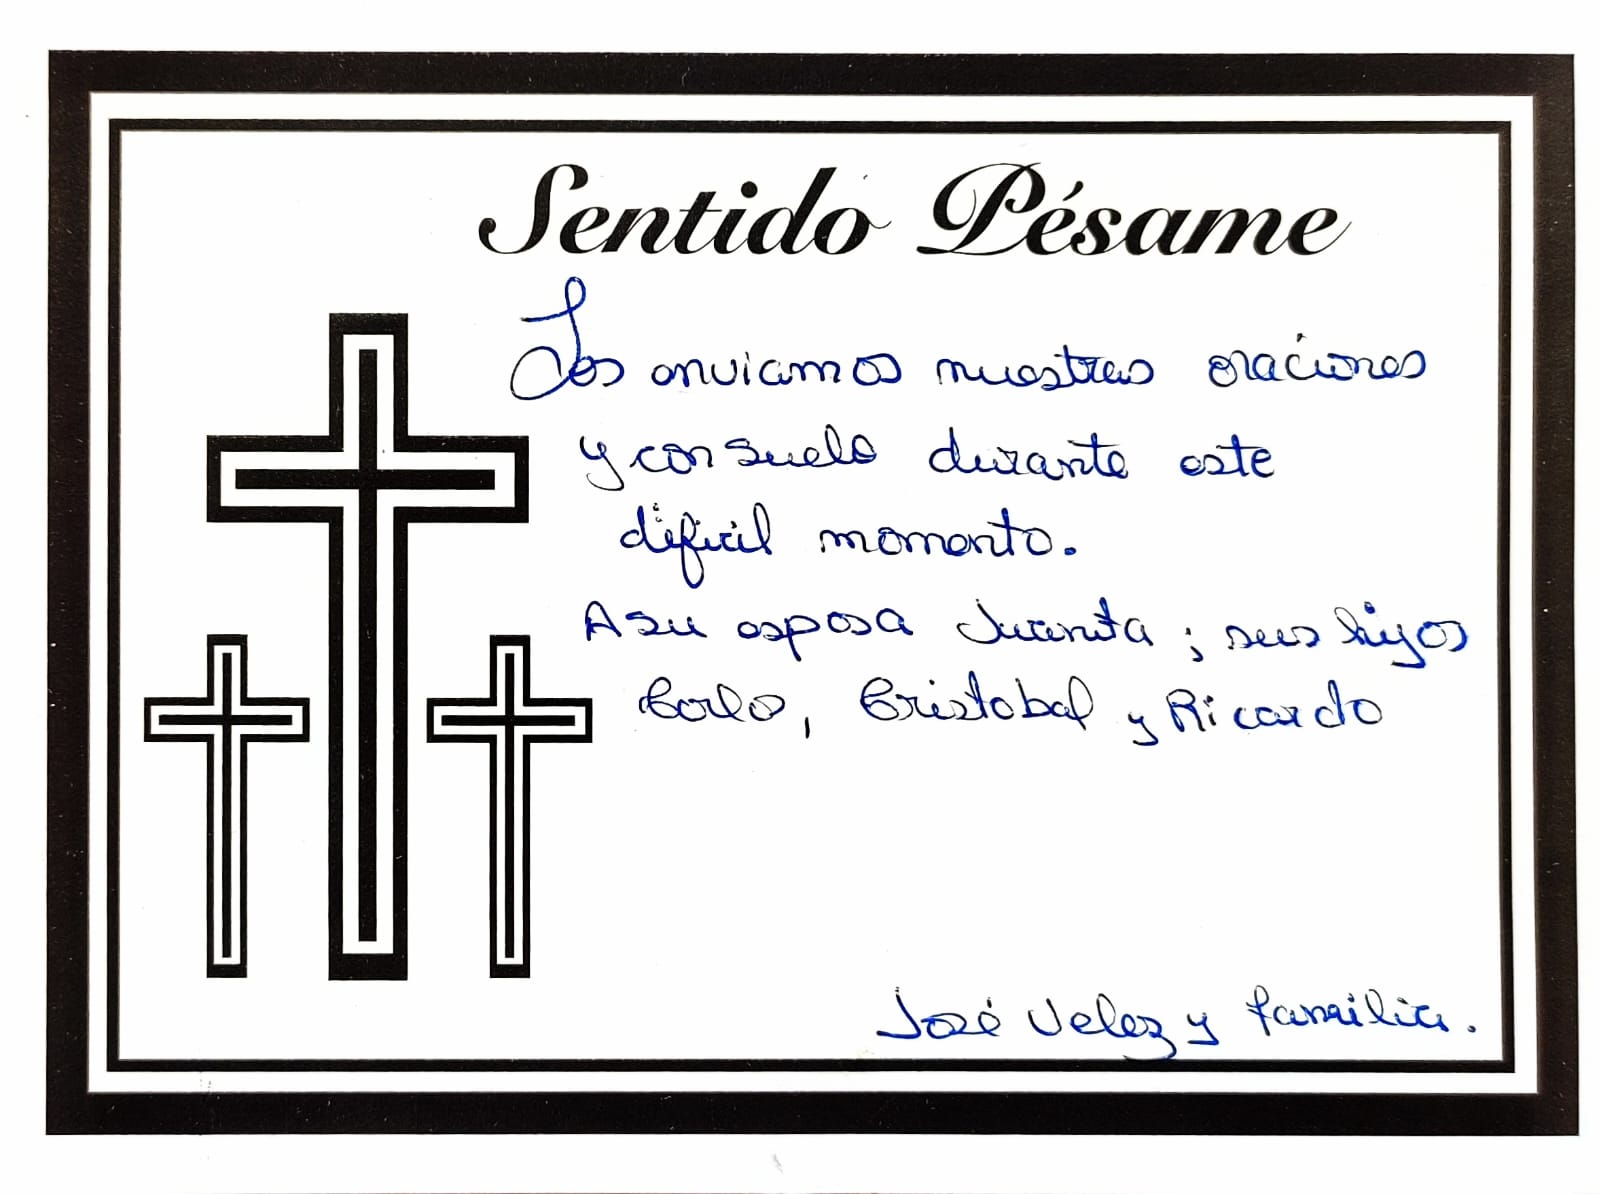 Sentido Pésame
Les enviamos nuestras oraciones
y consuelo durante este
dificil momento.
A su esposa Juanita; sus hijos
Carlo, Cristobal y Ricardo
José Velez y familia.